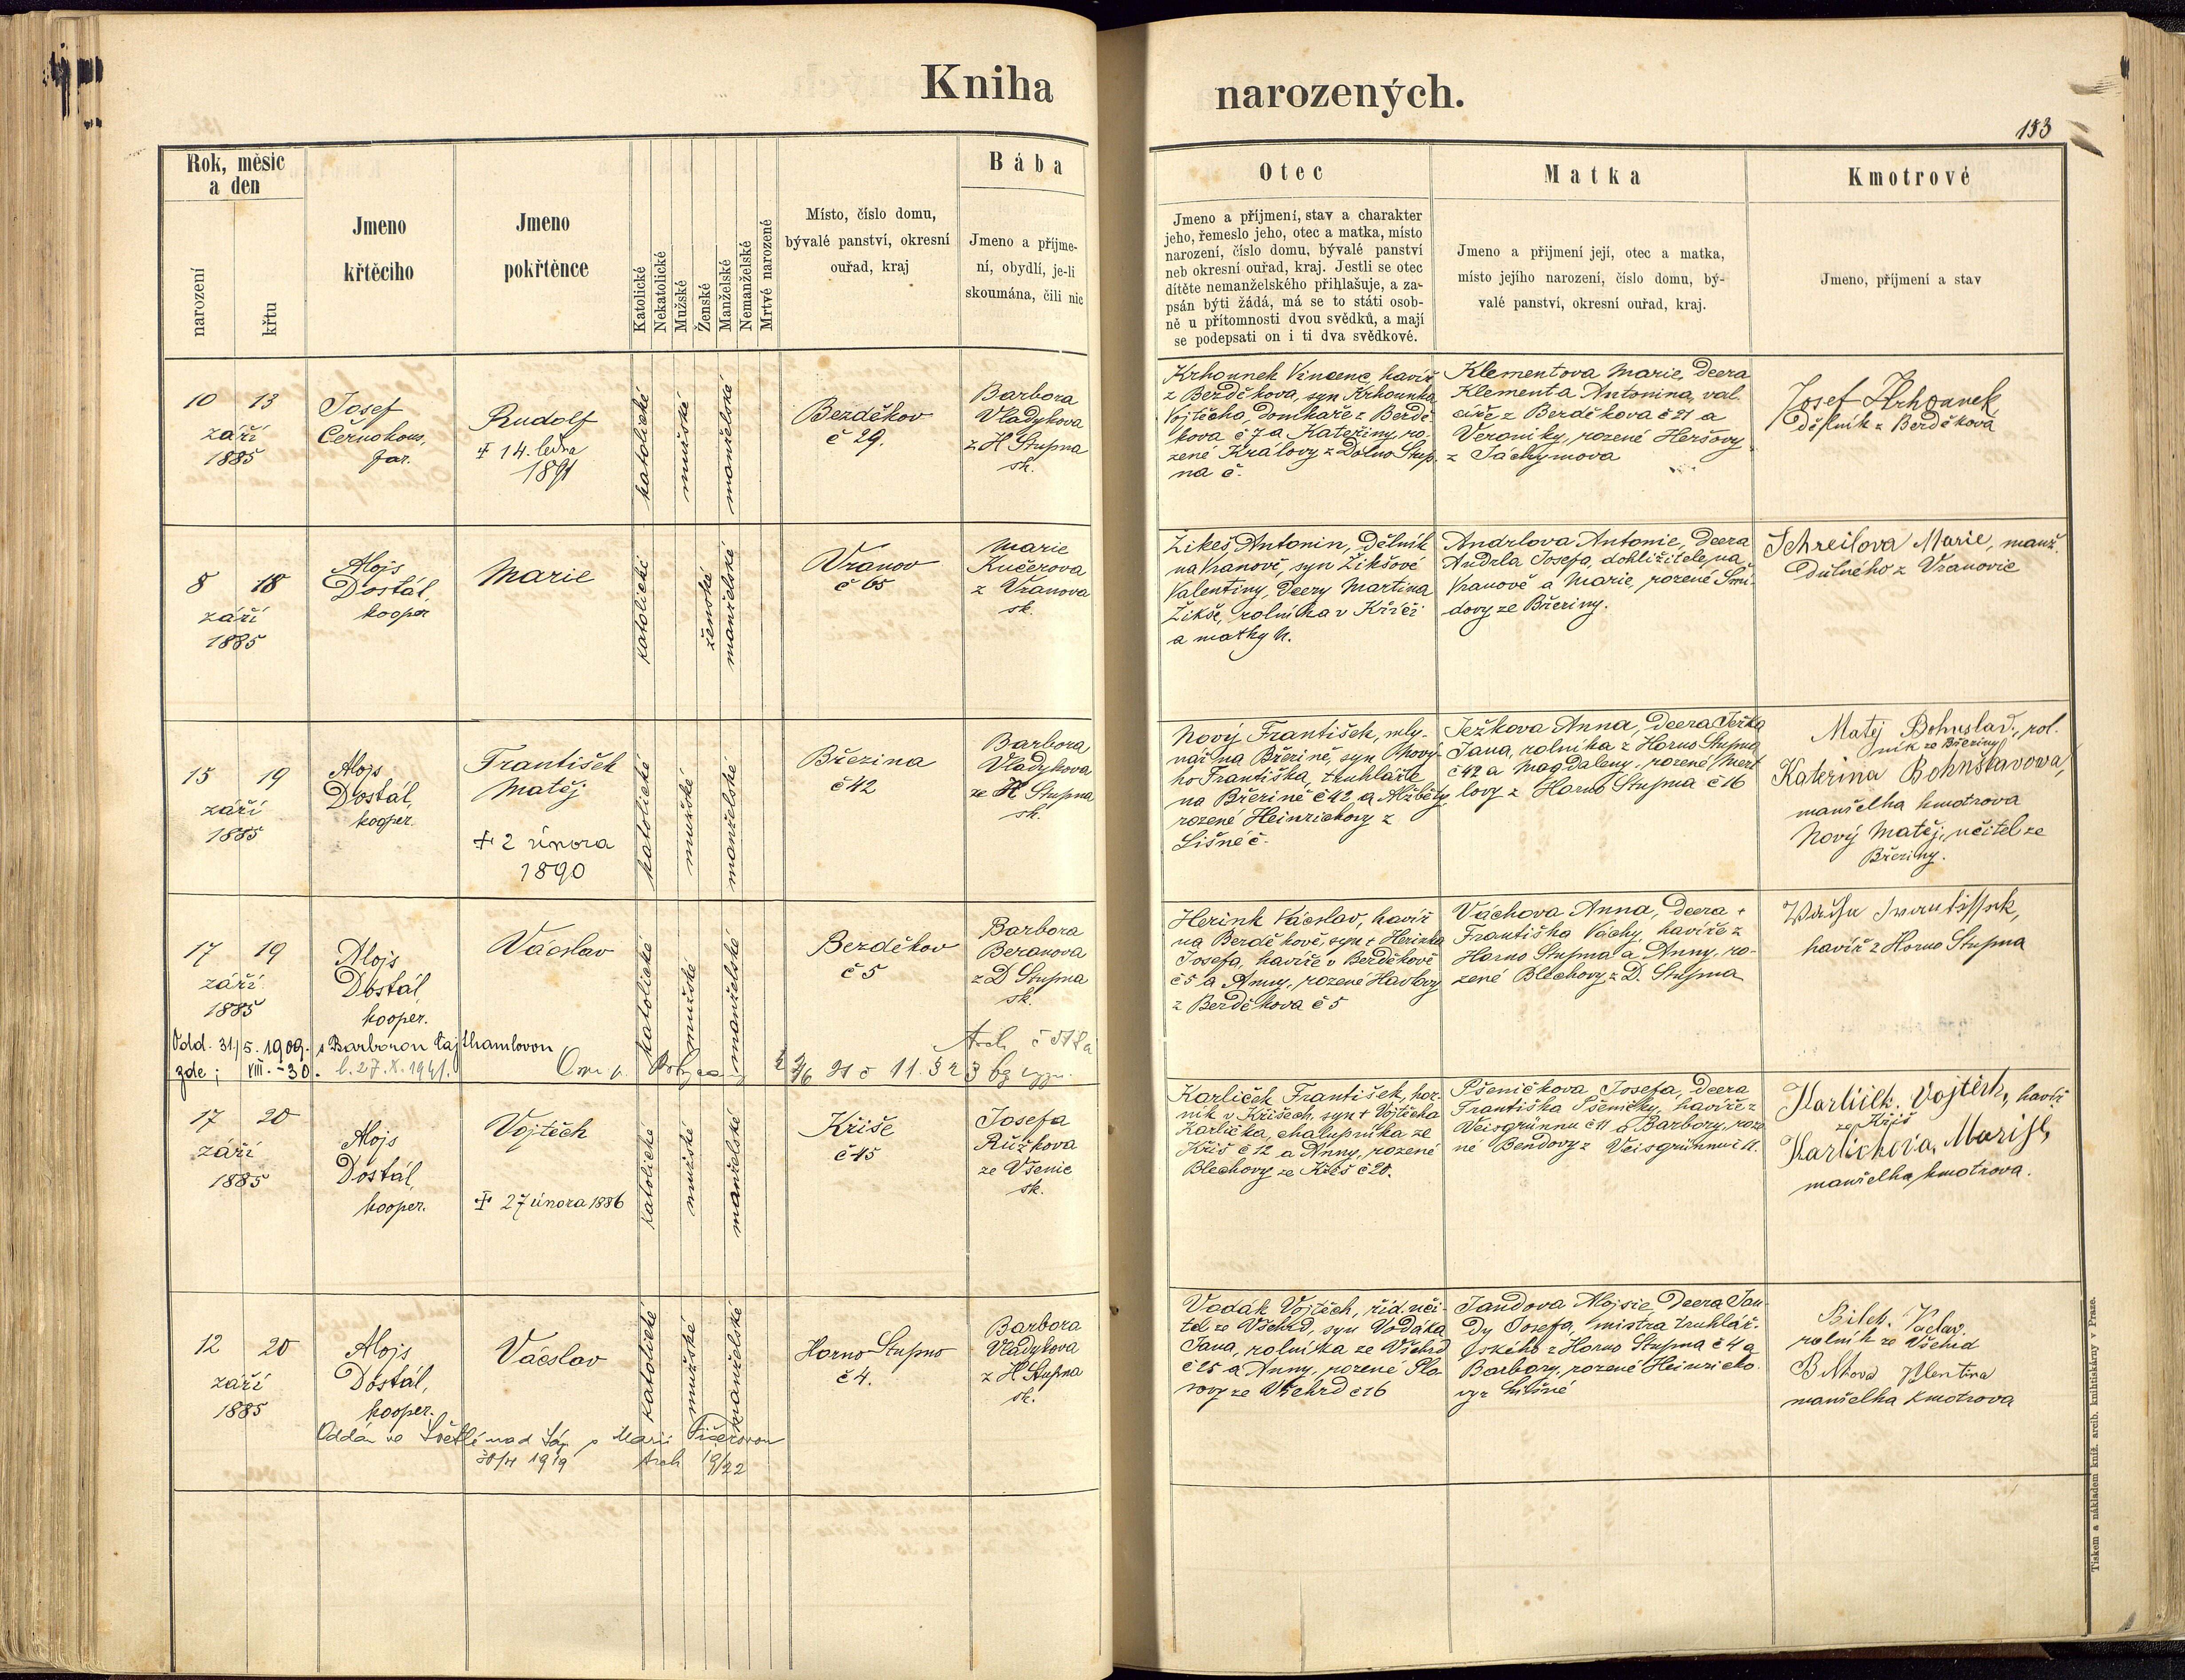 Kniha narozených.
153
Rok, měsíc
a den
narození
křtu
Jmeno
křtěcího
Jmeno
pokřtěnce
Katolické
Nekatolické
Mužské
Ženské
Manželské
Nemanželské
Mrtvé narozené
Místo, číslo domu,
bývalé panství, okresní
ouřad, kraj
Bába
Jmeno a příjme-
ní, obydlí, je-li
skoumána, čili nic
Otec
Jmeno a příjmení, stav a charakter
jeho, řemeslo jeho, otec a matka, místo
narození, číslo domu, bývalé panství
neb okresní ouřad, kraj. Jestli se otec
dítěte nemanželského přihlašuje, a za-
psán býti žádá, má se to státi osob-
ně u přítomnosti dvou svědků, a mají
se podepsati on i ti dva svědkové.
Matka
Jmeno a přijmení její, otec a matka,
místo jejího narození, číslo domu, bý-
valé panství, okresní ouřad, kraj.
Kmotrové
Jmeno, příjmení a stav
10 13
září
1885
Josef
Černohous,
far.
Rudolf
† 14. ledna
1891
katolické
mužské
manželské
Bezděkov
č 29.
Barbora
Vladykova
z H Stupna
sk.
Krhounek Vincenc, havíř
z Bezděkova, syn Krhounka
Vojtěcha, domkaře z Bezdě-
kova č 7 a Kateřiny, ro-
zené Královy z Dolno Stup-
na č.
Klementova Marie, dcera
Klementa Antonina, val-
cíře z Bezděkova č 21 a
Veroniky, rozené Heršovy
z Jáchymova
Josef Krhounek
Dělník z Bezděkova
8 18
září
1885
Alojs
Dostál,
kooper
Marie
katolické
ženské
manželské
Vranov
č 65
Marie
Kučerova
z Vranova
sk.
Žikeš Antonin, Dělník
na Vranově, syn Žikšové
Valentiny, dcery Martina
Žikše, rolníka v Kříči
a matky N.
Andrlova Antonie, dcera
Andrla Josefa, dohližitele na
Vranově a Marie, rozené Šmí-
dovy ze Březiny.
Schreilova Marie, manž.
Důlného z Vranovic
15 19
září
1885
Alojs
Dostál,
kooper.
František
Matěj
† 2 února
1890
katolické
mužské
manželské
Březina
č 42
Barbora
Vladykova
ze H Stupna
sk.
Nový František, mly-
nář na Březině, syn Nové-
ho Františka, truhláře
na Březině č 42 a Alžběty
rozené Heinrichovy z
Lišné č.
Ježkova Anna, dcera Ježka
Jana, rolníka z Horno Stupna
č 42 a Magdaleny, rozené Mert-
lovy z Horno Stupna č 16
Matěj Bohuslav, rol-
ník ze Březiny
Kateřina Bohuslavova,
manželka kmotrova
Nový Matěj, učitel ze
Březiny.
17 19
září
1885
Alojs
Dostál,
kooper.
Václav
katolické
mužské
manželské
Bezděkov
č 5
Barbora
Beranova
z D Stupna
sk.
Herink Václav, havíř
na Bezděkově, syn † Herinka
Josefa, havíře v Bezděkově
č 5 a Anny, rozené Havlovy
z Bezděkova č 5
Váchova Anna, dcera †
Františka Váchy, havíře z
Horno Stupna a Anny, ro-
zené Blechovy z D. Stupna
havíř z Horno Stupna
Odd. 31/5. 1909. s Barborou Lajthamlovou
zde; VIII.-30. č. 27. X. 1941.
17 20
září
1885
Alojs
Dostál,
kooper.
Vojtěch
† 27 února 1886
katolické
mužské
manželské
Kříše
č 45
Josefa
Růžkova
ze Všenic
sk.
Karlíček František, hor-
ník v Kříšech, syn † Vojtěcha
Karlíčka, chalupníka ze
Kříš č 12 a Anny, rozené
Blechovy ze Kříš č 20.
Pšeničkova Josefa, dcera
Františka Pšeničky, havíře z
Veisgrünnu č 11 a Barbory, roze-
né Bendovy z Veisgrünnu č 11.
Karlíček Vojtěch, havíř
ze Kříš
Karlíčkova, Marije,
manželka kmotrova.
12 20
září
1885
Alojs
Dostál,
kooper.
Václav
katolické
mužské
manželské
Horno Stupno
č 4.
Barbora
Vladykova
z H Stupna
sk.
Vodák Vojtěch, říd. uči-
tel ze Všehrd, syn Vodáka
Jana, rolníka ze Všehrd
č 25 a Anny, rozené Pla-
rovy ze Všehrd č 16
Jandova Alojsie, dcera Jan-
dy Josefa, mistra truhlář-
ského z Horno Stupna č 4 a
Barbory, rozené Heinricho-
vy z Lišné
Bílek Václav,
rolník ze Všehrd
Bílkova
manželka kmotrova
Oddán ve Světlé nad Sáz s Marií
1919
Tiskem a nákladem kníž. arcib. knihtiskárny v Praze.